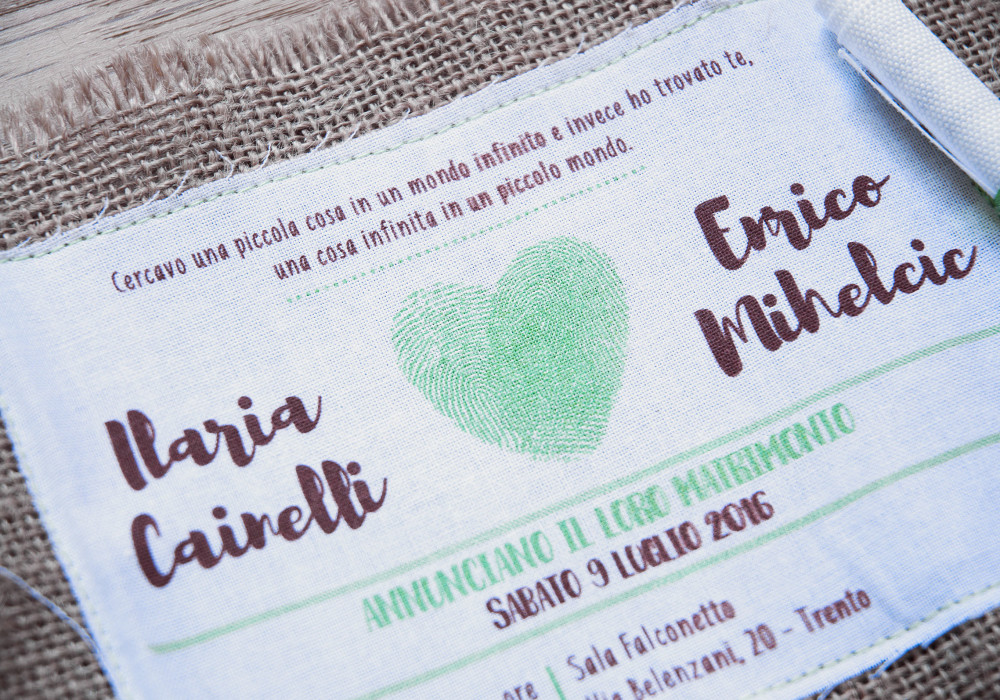 Cercavo una piccola cosa in un mondo infinito e invece ho trovato te,
una cosa infinita in un piccolo mondo.
Ilaria
Cainelli
Enrico
Mihelcic
ANNUNCIANO IL LORO MATRIMONIO
SABATO 9 LUGLIO 2016
ore
Sala Falconetto
Belenzani, 20 - Trento